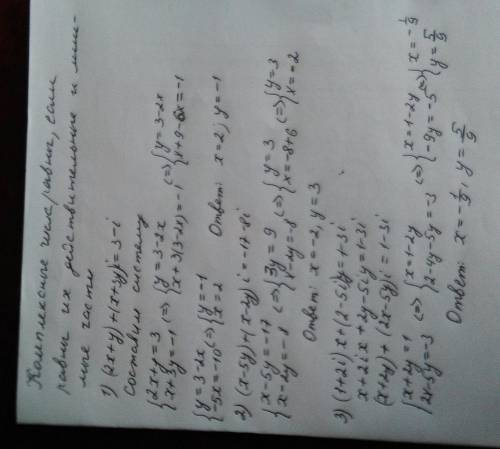 Комплексные числа равны, если
равны их действительные и мни-
мые части
1) (2x+y)+(x+3y)i=3-i
Составим систему
{2x+y=3 {x+3y=-1 (=> {y=3-2x {x+3(3-2x)=-1 (=> {y=3-2x {x+9-6x=-1
{y=3-2x {-5x=-10 (=> {y=-1 {x=2 Ответ: x=2; y=-1
2) (x-5y)+(x-2y)i=-17-8i
{x-5y=-17 {x-2y=-8 (=> {3y=9 {x-2y=-8 (=> {y=3 {x=-8+6 (=> {y=3 {x=-2
Ответ: x=-2, y=3
3) (1+2i)x+(2-5i)y=1-3i
x+2ix+2y-5iy=1-3i
(x+2y)+(2x-5y)i=1-3i
{x+2y=1 {2x-5y=-3 (=> {x=1-2y {2-4y-5y=-3 (=> {x=1-2y {-9y=-5 (=> {x=-1/9 {y=5/9
Ответ: x=-1/9, y=5/9